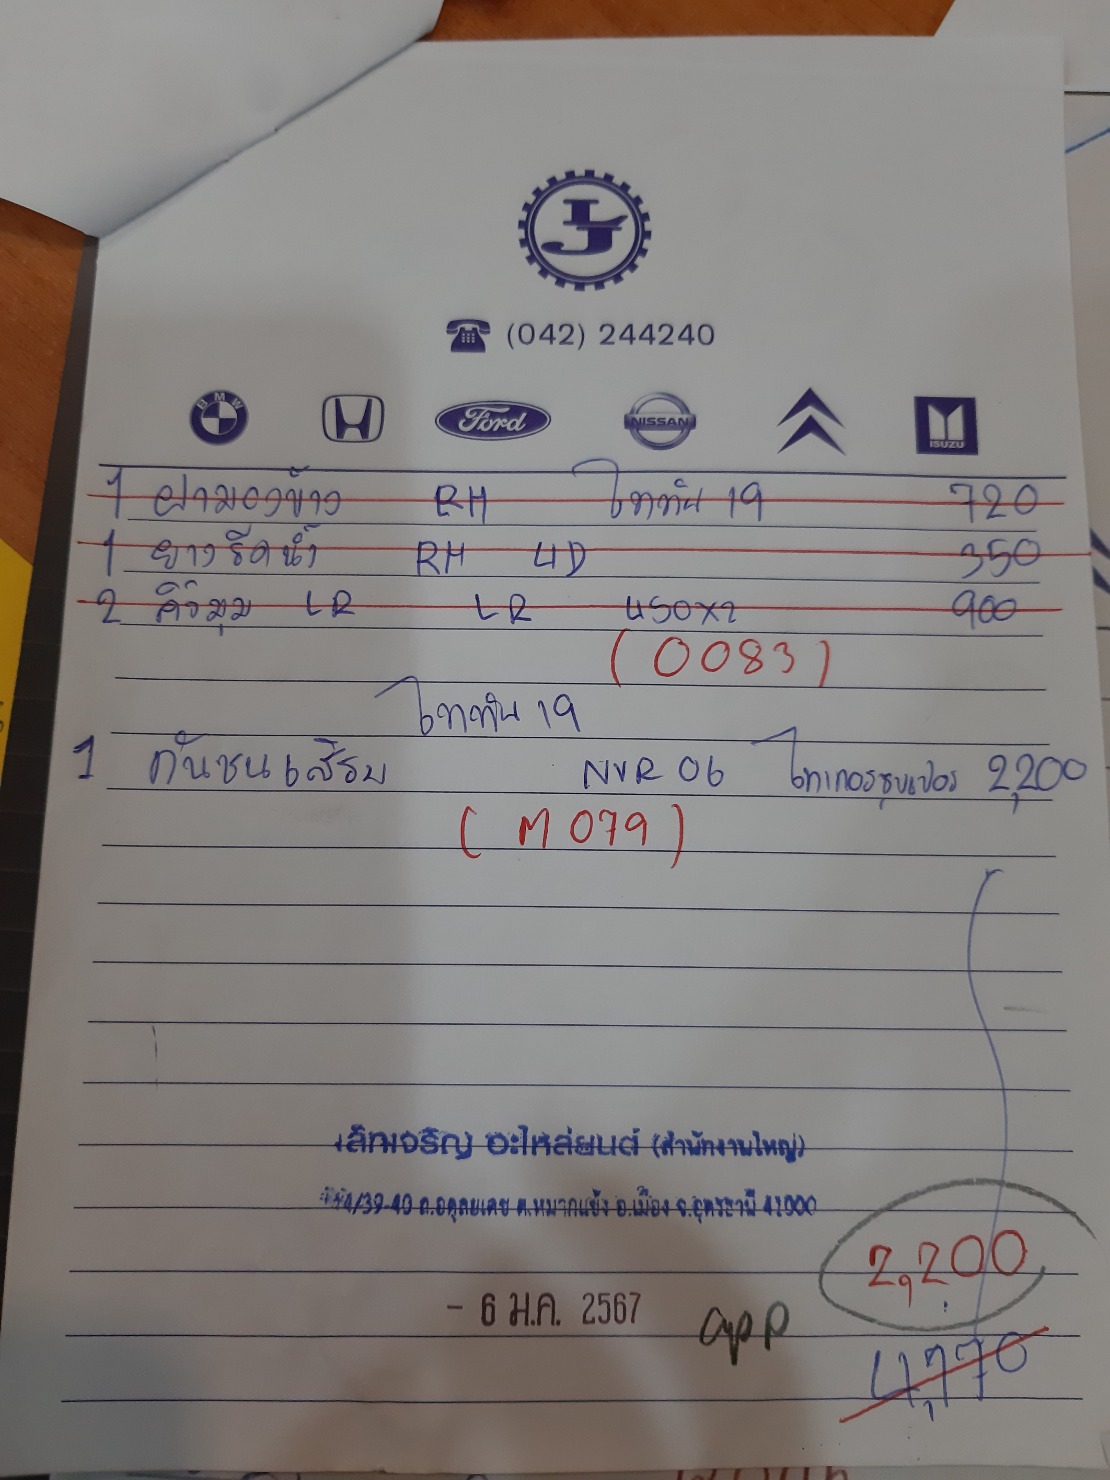 (042) 244240
BMW
Ford
NISSAN
ISUZU
1 ฝามองข้าง RH ไททัน 19 720
1 ยางรีดน้ำ RH 4D 350
2 คิ้วมุม LR LR 450x2 900
(0083)
ไททัน 19
1 กันชนเสริม NVR 06 ไทเกอร 2,200
(M 079)
เลิศเจริญ อะไหล่ยนต์ (สำนักงานใหญ่)
4/39-40 ถ.อดุลยเดช ต.หมากแข้ง อ.เมือง จ.อุดรธานี 41000
2,200
- 6 ม.ค. 2567 app
4,770